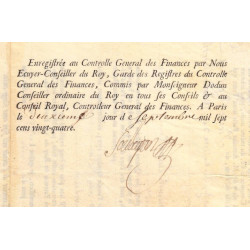 Enregistrée au Controlle General des Finances par Nous
Ecuyer-Conseiller du Roy, Garde des Registres du Controlle
General des Finances, Commis par Monseigneur Dodun
Conseiller ordinaire du Roy en tous ses Conseils & au
Conseil Royal, Controlleur General des Finances. A Paris
le deuxieme jour de Septembre mil sept
cens vingt-quatre.